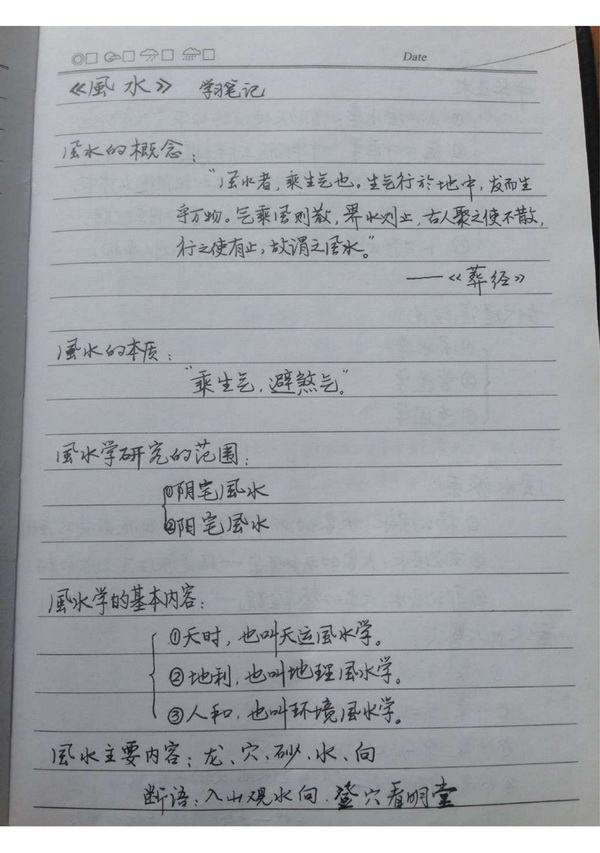 Date
《風水》 学习笔记
風水的概念：
“風水者，乘生气也。生气行於地中，发而生
乎万物。气乘風则散，界水则止，古人聚之使不散，
行之使有止，故谓之風水。”
——《葬经》
風水的本质：
“乘生气，避煞气。”
風水学研究的范围：
①阴宅風水
②阳宅風水
風水学的基本内容：
①天时，也叫天运風水学。
②地利，也叫地理風水学。
③人和，也叫环境風水学。
風水主要内容：龙、穴、砂、水、向
断语：入山观水向，登穴看明堂